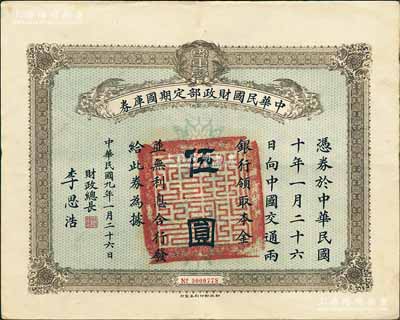 中華民國財政部定期國庫券
憑券於中華民國
十年一月二十六
日向中國交通兩
銀行領取本金
伍圓
並無利息合行發
給此券為據
中華民國九年一月二十六日
財政總長
李思浩
No 0000778